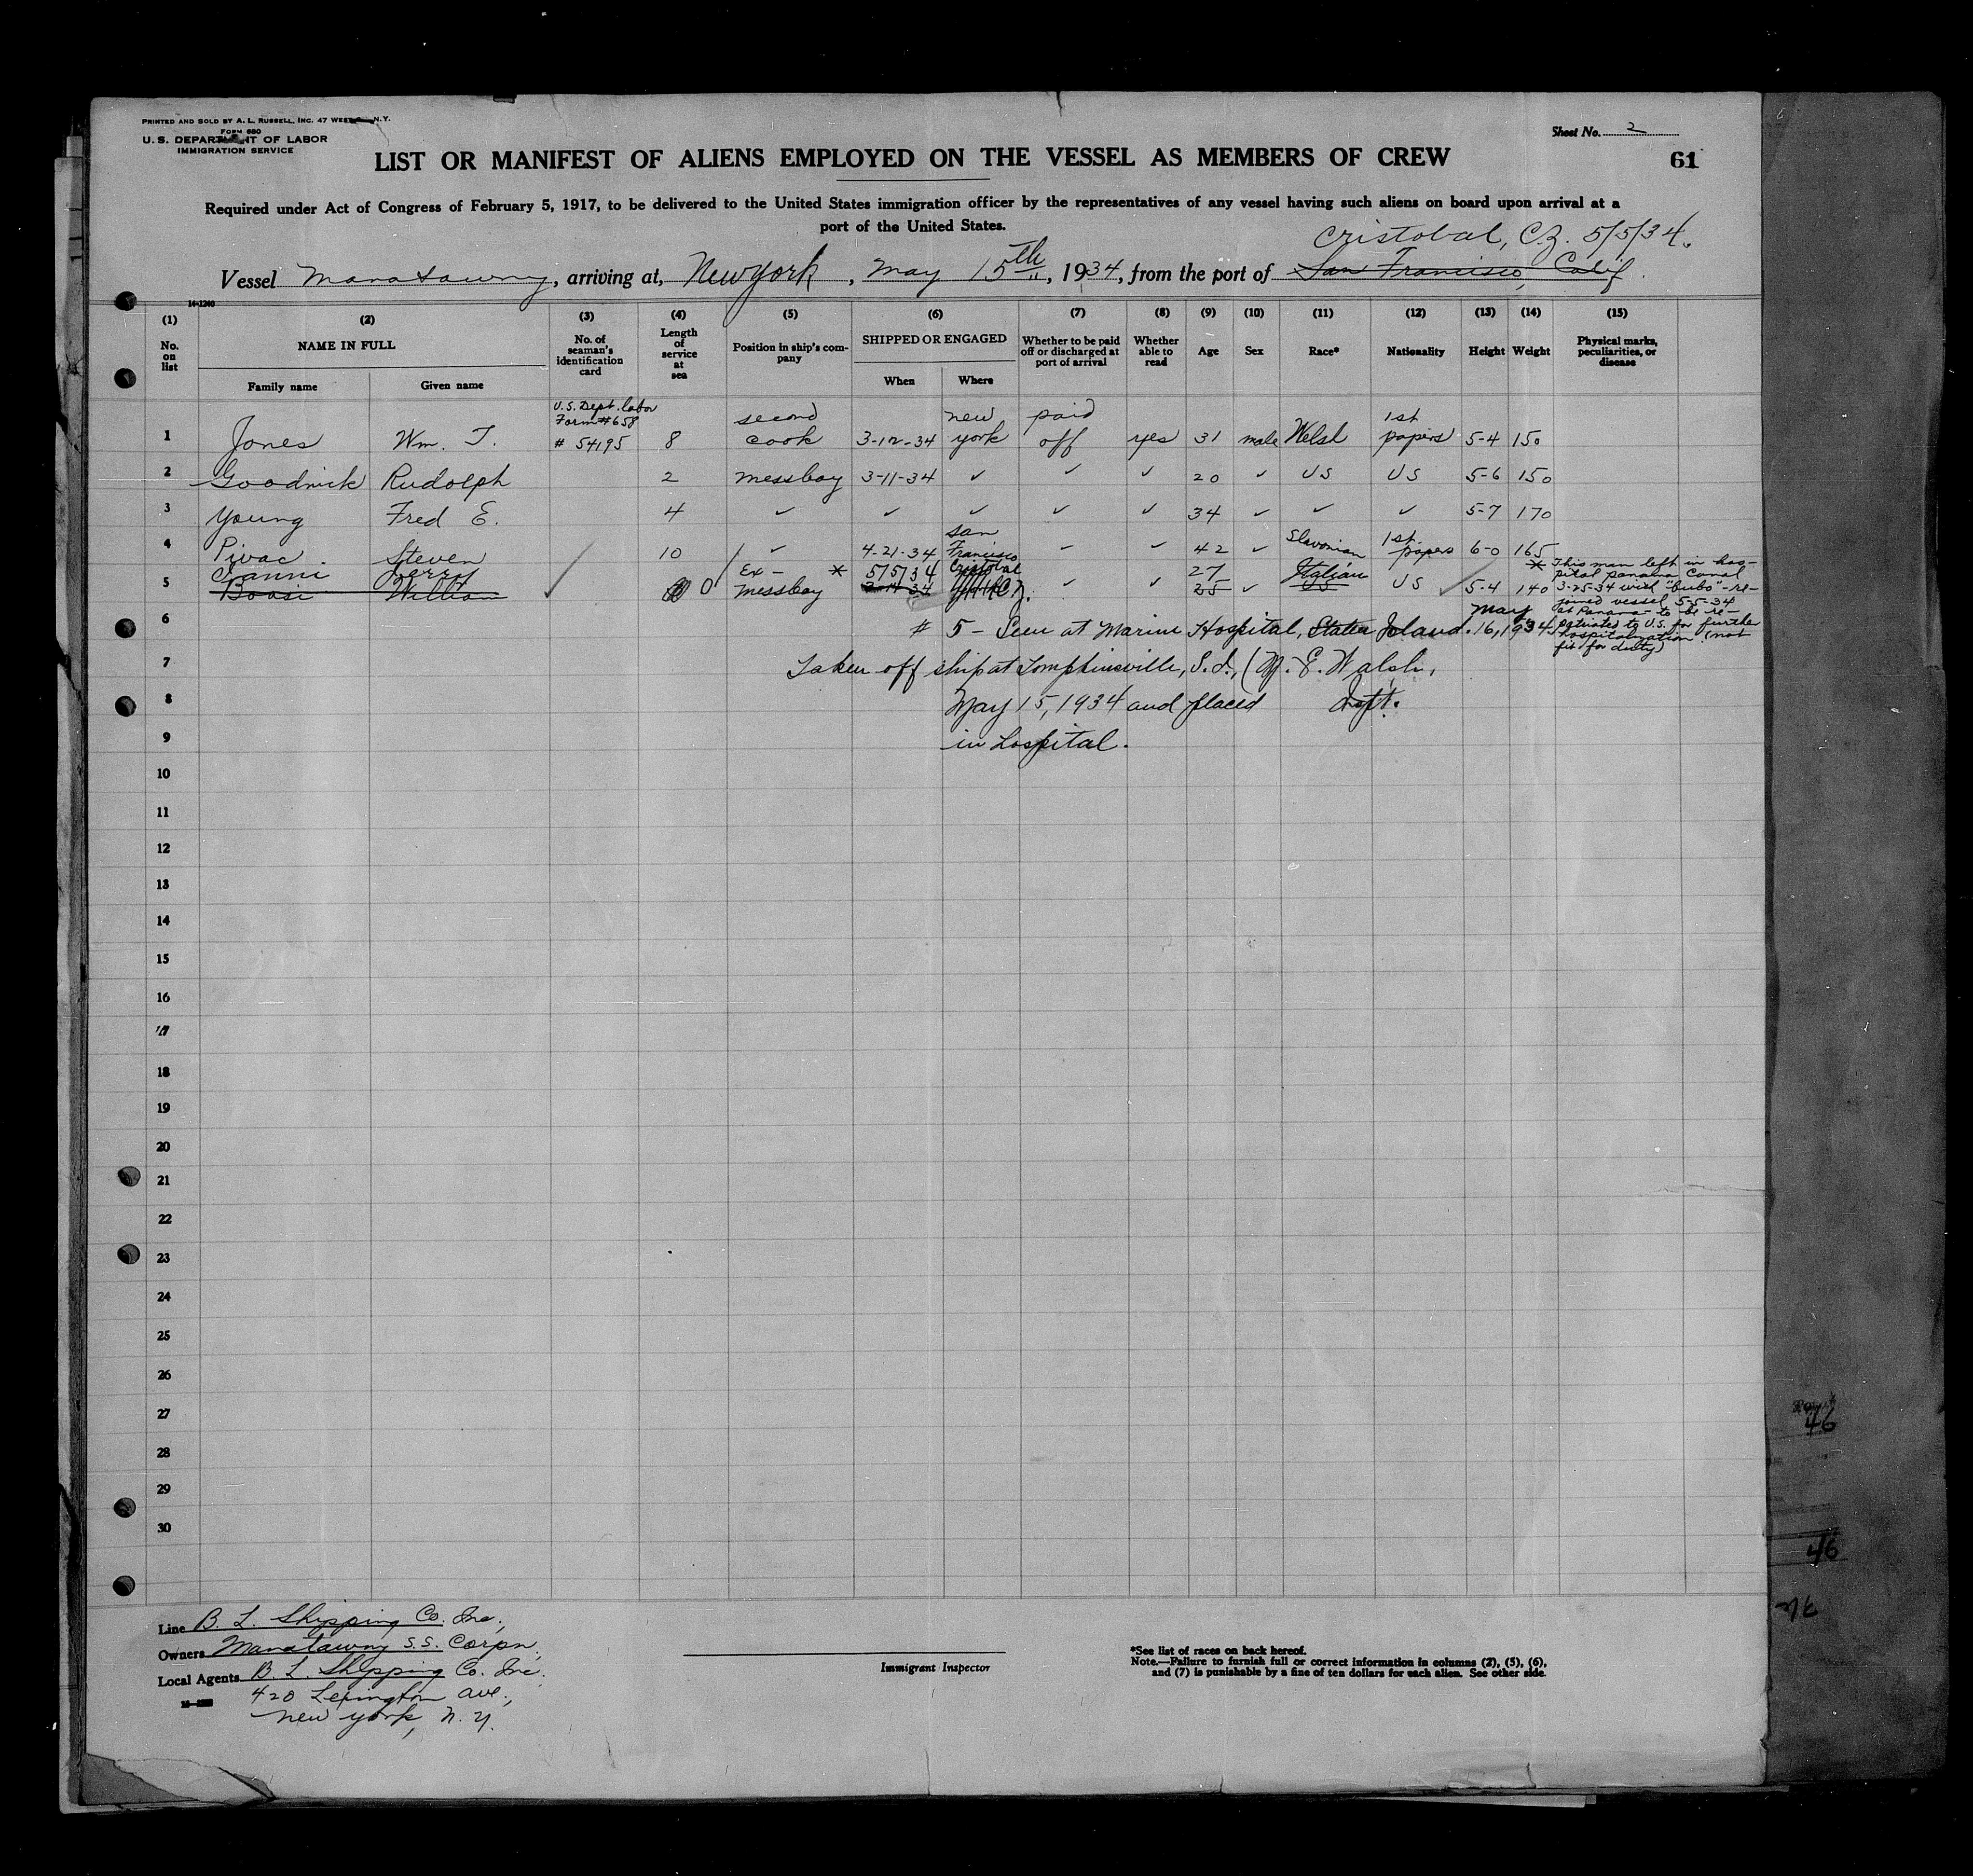 PRINTED AND SOLD BY A. L. RUSSELL, INC. 47 WEST N.Y.
FORM 680
U. S. DEPARTMENT OF LABOR
IMMIGRATION SERVICE
Sheet No. 2
LIST OR MANIFEST OF ALIENS EMPLOYED ON THE VESSEL AS MEMBERS OF CREW
61
Required under Act of Congress of February 5, 1917, to be delivered to the United States immigration officer by the representatives of any vessel having such aliens on board upon arrival at a
port of the United States.
Cristobal, C.Z. 5/5/34.
Vessel Manatawny, arriving at, New York, May 15th, 1934, from the port of San Francisco, Calif.
14-1240
(1) (2) (3) (4) (5) (6) (7) (8) (9) (10) (11) (12) (13) (14) (15)
No. on list
NAME IN FULL
Family name Given name
No. of seaman's identification card
Length of service at sea
Position in ship's company
SHIPPED OR ENGAGED
When Where
Whether to be paid off or discharged at port of arrival
Whether able to read
Age Sex Race* Nationality Height Weight
Physical marks, peculiarities, or disease
1 Jones Wm. T. U.S. Dept. labor Form #658 # 54195 8 second cook 3-12-34 new york paid off yes 31 male Welsh 1st papers 5-4 150
2 Goodnick Rudolph 2 messboy 3-11-34 ✓ ✓ ✓ 20 ✓ US US 5-6 150
3 Young Fred E. 4 ✓ ✓ ✓ ✓ ✓ 34 ✓ ✓ ✓ 5-7 170
4 Pivac Steven 10 ✓ 4-21-34 San Francisco ✓ ✓ 42 ✓ Slavonian 1st papers 6-0 165
Gianni Jerry 5/5/34 Cristobal 27 Italian
5 Boasi William 0 Ex-messboy * ✓ ✓ 25 ✓ US US 5-4 140
* This man left in hos-
pital Panama Canal
3-25-34 with "bubo" - re-
joined vessel 5-5-34
at Panama - to be re-
patriated to U.S. for further
hospitalization (not
fit for duty)
6 # 5 - Seen at Marine Hospital, Staten Island. May 16, 1934.
7 Taken off ship at Tompkinsville, S.I., (M. E. Walsh,
8 May 15, 1934 and placed Inspt.
9 in hospital.
10
11
12
13
14
15
16
17
18
19
20
21
22
23
24
25
26
27
28
29
30
46
46
Line B. L. Shipping Co. Inc.,
Owners Manatawny S.S. Corpn,
Local Agents B. L. Shipping Co. Inc.
420 Lexington Ave.,
New York, N. Y.
Immigrant Inspector
*See list of races on back hereof.
Note.—Failure to furnish full or correct information in columns (2), (5), (6),
and (7) is punishable by a fine of ten dollars for each alien. See other side.